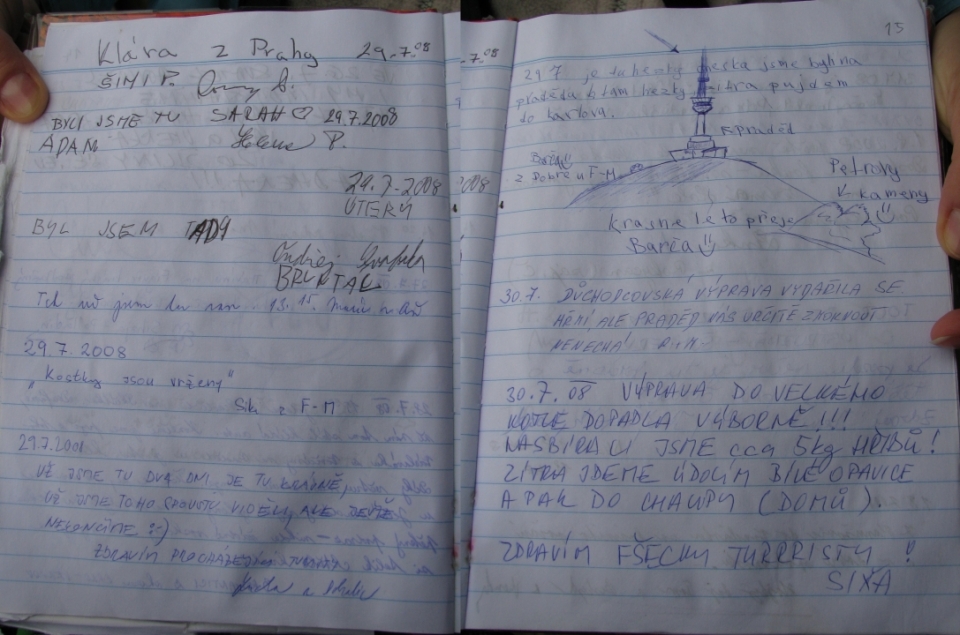 Klára z Prahy 29.7.08
ŠIMI P.
BYLI JSME TU SARAH ♡ 29.7.2008
ADAM Helena P.
29.7.2008
ÚTERÝ
BYL JSEM TADY
Ondřej
BRUNTÁL
29.7.2008
"Kostky jsou vrženy"
z F-M
29.7.2001
UŽ JSME TU DVA DNI, JE TU KRÁSNĚ,
UŽ JSME TOHO SPOUSTU VIDĚLI, ALE JEŠTĚ
NEKONČÍME :-)
ZDRAVÍM
a
-7.08
2008
15
29.7. je tu hezky jsme byli na
pradědu a tam hezky zítra pujdem
do karlova.
praděd
Barča
z Dobré u F-M
Petrovy
kameny
Krásné léto přeje
Barča
30.7. DŮCHODCOVSKÁ VÝPRAVA VYDAŘILA SE
HŘMÍ ALE PRADĚD NÁS URČITĚ ZMOKNOUT
NENECHÁ!
30.7.08 VÝPRAVA DO VELKÉHO
KOTLE DOPADLA VÝBORNĚ!!!
NASBÍRALI JSME cca 5kg HŘIBŮ!
ZÍTRA JDEME ÚDOLÍM BÍLÉ OPAVICE
A PAK DO CHALUPY (DOMŮ).
ZDRAVÍM FŠECKY TURRRISTY!
SIXA